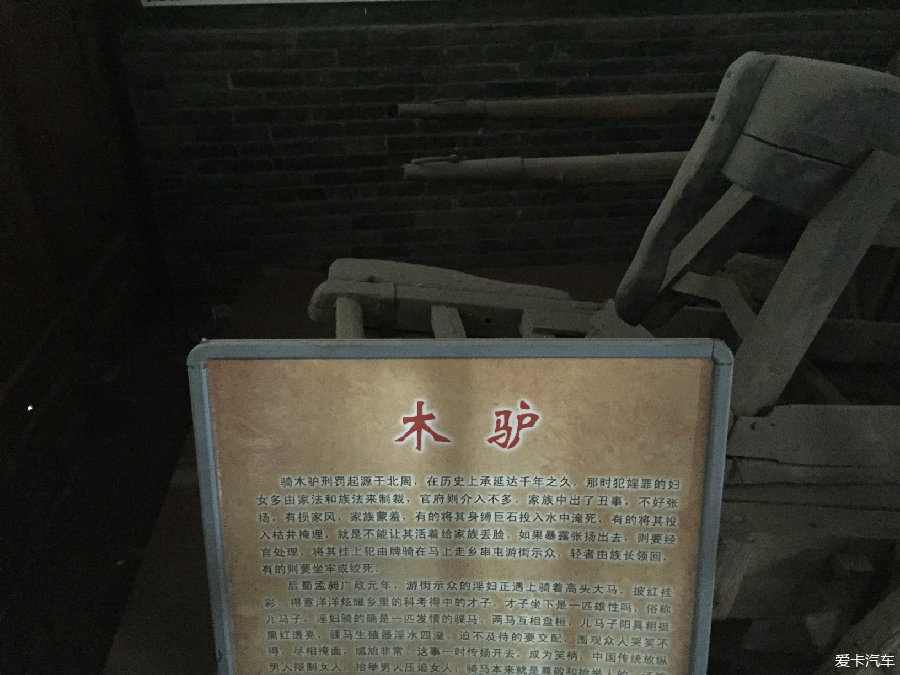 木驴
骑木驴刑罚起源于北周，在历史上承延达千年之久，那时犯婬罪的妇
女多由家法和族法来制裁，官府则介入不多，家族中出了丑事，不好张
扬，有损家风，家族蒙羞，有的将其身缚巨石投入水中淹死，有的将其投
入枯井掩埋，就是不能让其活着给家族丢脸。如果暴露张扬出去，则要经
官处理，将其挂上犯由牌骑在马上走乡串屯游街示众，轻者由族长领回，
有的则要坐牢或绞死。
后蜀孟昶广政元年，游街示众的淫妇正遇上骑着高头大马，披红挂
彩，得意洋洋炫耀乡里的科考得中的才子，才子坐下是一匹雄性吗，俗称
儿马子，淫妇骑的确是一匹发情的骒马，两马互相盘桓，儿马子阳具粗挺
黑红透亮，骒马生殖器淫水四溢，迫不及待的要交配，围观众人哭笑不
得，尽相掩面，尴尬非常，这事一时传扬开去，成为笑柄，中国传统放纵
男人限制女人，抬举男人压迫女人，骑马本来就是尊敬和抬举人的
爱卡汽车